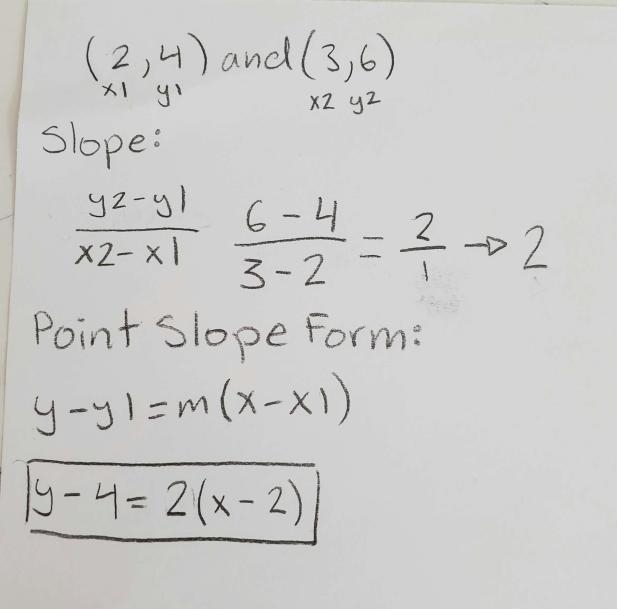 (2,4) and (3,6)
x1 y1 x2 y2
Slope:
y2-y1 / x2-x1 6-4 / 3-2 = 2/1 → 2
Point Slope Form:
y-y1=m(x-x1)
y-4=2(x-2)